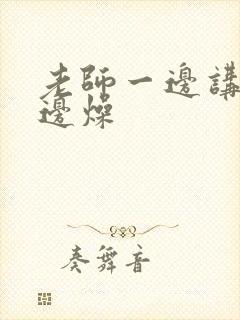 老師一邊講
邊燥
奏舞音